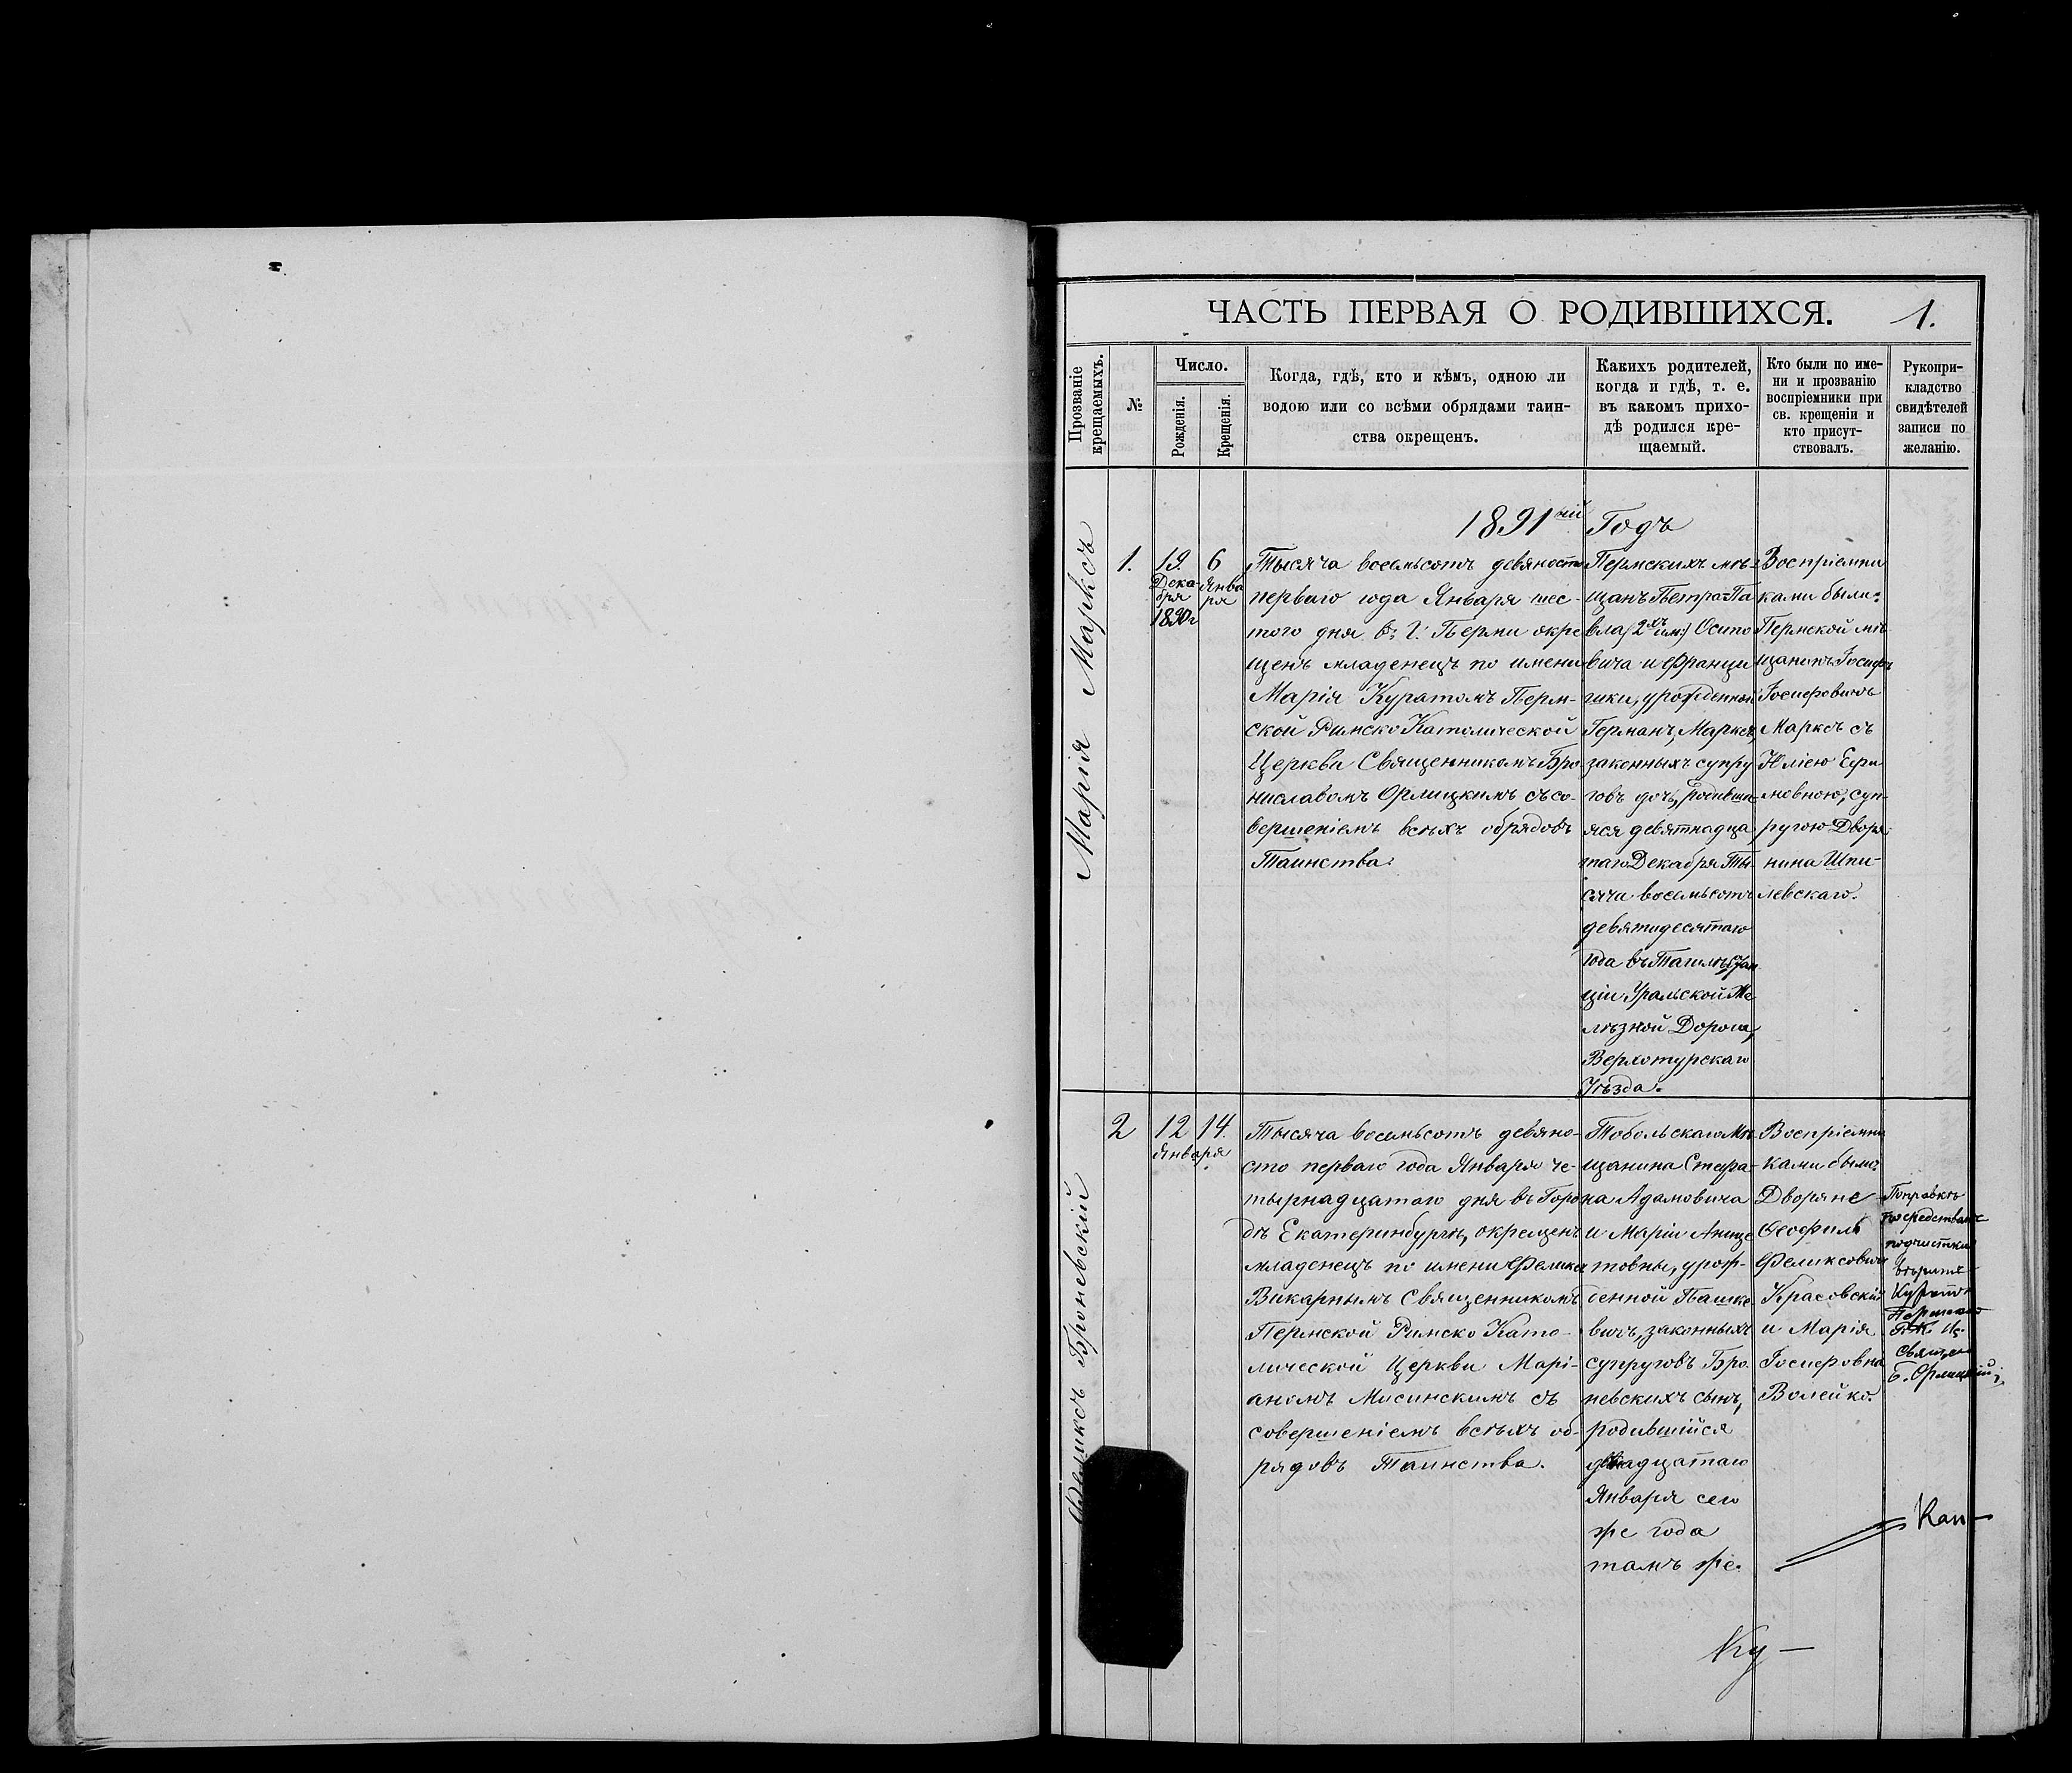 ЧАСТЬ ПЕРВАЯ О РОДИВШИХСЯ. 1.
Прозваніе
крещаемыхъ.
№
Число.
Рожденія.
Крещенія.
Когда, гдѣ, кто и кѣмъ, одною ли
водою или со всѣми обрядами таин-
ства окрещенъ.
Какихъ родителей,
когда и гдѣ, т. е.
въ какомъ прихо-
дѣ родился кре-
щаемый.
Кто были по име-
ни и прозванію
воспріемники при
св. крещеніи и
кто присут-
ствовалъ.
Рукопри-
кладство
свидѣтелей
записи по
желанію.
1891ый Годъ
Марія Марксъ
1.
19.
Дека-
бря
1890г
6
Янва
ря
Тысяча восемьсотъ девяносто
перваго года Января шес-
того дня въ Г. Перми окре
щенъ младенецъ по имени
Марія Куратомъ Перм-
ской Римско Католической
Церкви Священникомъ Бро
ниславомъ Орлицкимъ съ со-
вершеніемъ всѣхъ обрядовъ
Таинства.
Пермскихъ мѣ-
щанъ Петра-Па
вла (2хъ им:) Осипо
вича и Францы
шки, урожденной
Германъ, Марксъ,
законныхъ супру
говъ дочь, родивша
яся девятнадца
таго Декабря Ты-
сяча восемьсотъ
девятидесятаго
года въ Тагилѣ Стан
ціи Уральской Же
лѣзной Дороги,
Верхотурскаго
Уѣзда.
Воспріемни
ками были:
Пермской мѣ-
щанинъ Іосифъ
Іосифовичъ
Марксъ съ
Юліею Ефи
мовною, суп-
ругою Дворя-
нина Шпи-
левскаго.
Феликсъ Броневскій
2
12
14.
Января
Тысяча восемьсотъ девяно-
сто перваго года Января че-
тырнадцатаго дня въ Горо
дѣ Екатеринбургѣ, окрещенъ
младенецъ по имени Феликсъ
Викарнымъ Священникомъ
Пермской Римско Като-
лической Церкви Марі-
аномъ Мисинскимъ съ
совершеніемъ всѣхъ об-
рядовъ Таинства.
Тобольскаго Мѣ-
щанина Стефа-
на Адамовича
и Маріи Аницe
товны, урож-
денной Пашке-
вичъ, законныхъ
супруговъ Бро-
невскихъ сынъ,
родившійся
двѣнадцатаго
Января сего
же года
тамъ же.
Воспріемни
ками были:
Дворяне
Ѳеофилъ
Феликсовичъ
Красовскій
и Марія
Іосифовна
Волейко.
Поправкѣ
посредствомъ
подчистки
вѣрить
Куратъ
Пермской
Р.К. Ц.
Священ
Б. Орлицкій
Кан-
Ку-